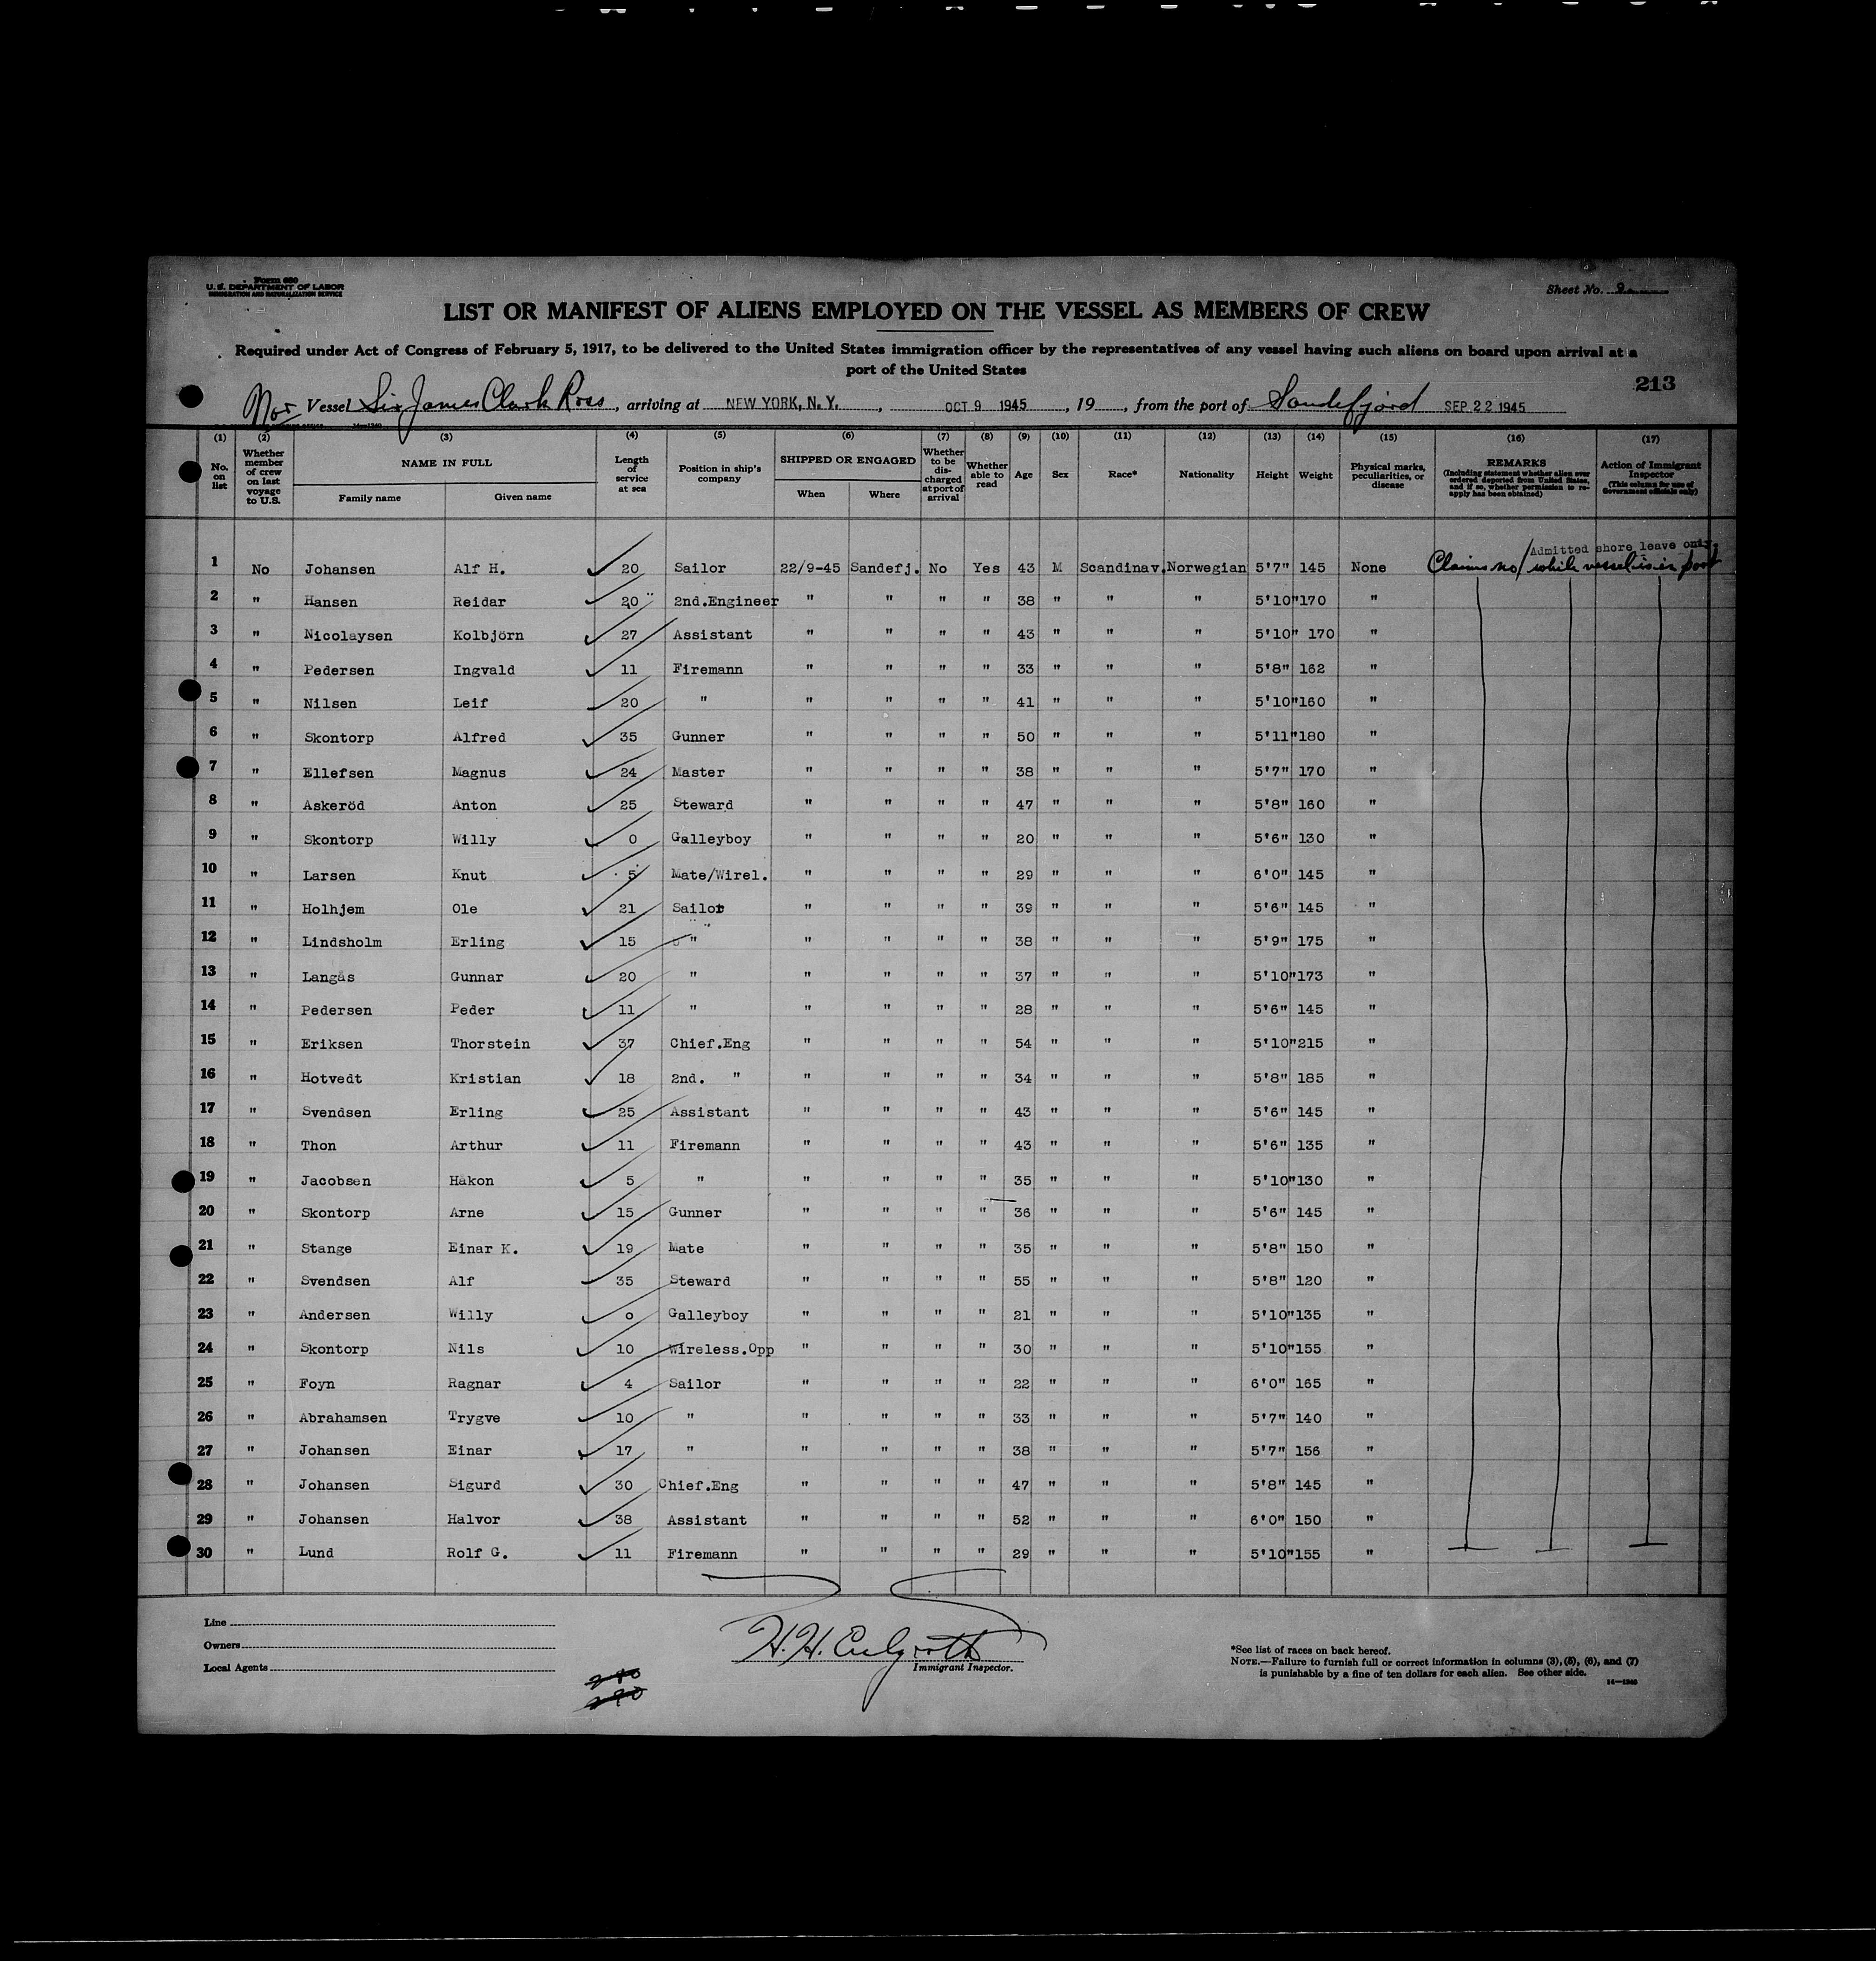 Form 680
U. S. DEPARTMENT OF LABOR
IMMIGRATION AND NATURALIZATION SERVICE
Sheet No. 9
LIST OR MANIFEST OF ALIENS EMPLOYED ON THE VESSEL AS MEMBERS OF CREW
Required under Act of Congress of February 5, 1917, to be delivered to the United States immigration officer by the representatives of any vessel having such aliens on board upon arrival at a
port of the United States
213
Nor Vessel Sir James Clark Ross, arriving at NEW YORK, N. Y., OCT 9 1945, 19, from the port of Sandefjord SEP 22 1945
(1) (2) (3) (4) (5) (6) (7) (8) (9) (10) (11) (12) (13) (14) (15) (16) (17)
No. on list | Whether member of crew on last voyage to U.S. | NAME IN FULL Family name Given name | Length of service at sea | Position in ship's company | SHIPPED OR ENGAGED When Where | Whether to be discharged at port of arrival | Whether able to read | Age | Sex | Race* | Nationality | Height | Weight | Physical marks, peculiarities, or disease | REMARKS (Including statement whether alien ever ordered deported from United States, and if so, whether permission to reapply has been obtained) | Action of Immigrant Inspector (This column for use of Government officials only)
Admitted shore leave only.
1 No Johansen Alf H. 20 Sailor 22/9-45 Sandefj. No Yes 43 M Scandinav. Norwegian 5'7" 145 None Claims no / while vessel is in port
2 " Hansen Reidar 20 2nd.Engineer " " " " 38 " " " 5'10" 170 "
3 " Nicolaysen Kolbjörn 27 Assistant " " " " 43 " " " 5'10" 170 "
4 " Pedersen Ingvald 11 Firemann " " " " 33 " " " 5'8" 162 "
5 " Nilsen Leif 20 " " " " " 41 " " " 5'10" 160 "
6 " Skontorp Alfred 35 Gunner " " " " 50 " " " 5'11" 180 "
7 " Ellefsen Magnus 24 Master " " " " 38 " " " 5'7" 170 "
8 " Askeröd Anton 25 Steward " " " " 47 " " " 5'8" 160 "
9 " Skontorp Willy 0 Galleyboy " " " " 20 " " " 5'6" 130 "
10 " Larsen Knut 5 Mate/Wirel. " " " " 29 " " " 6'0" 145 "
11 " Holhjem Ole 21 Sailor " " " " 39 " " " 5'6" 145 "
12 " Lindsholm Erling 15 " " " " " 38 " " " 5'9" 175 "
13 " Langås Gunnar 20 " " " " " 37 " " " 5'10" 173 "
14 " Pedersen Peder 11 " " " " " 28 " " " 5'6" 145 "
15 " Eriksen Thorstein 37 Chief.Eng " " " " 54 " " " 5'10" 215 "
16 " Hotvedt Kristian 18 2nd. " " " " " 34 " " " 5'8" 185 "
17 " Svendsen Erling 25 Assistant " " " " 43 " " " 5'6" 145 "
18 " Thon Arthur 11 Firemann " " " " 43 " " " 5'6" 135 "
19 " Jacobsen Håkon 5 " " " " " 35 " " " 5'10" 130 "
20 " Skontorp Arne 15 Gunner " " " " 36 " " " 5'6" 145 "
21 " Stange Einar K. 19 Mate " " " " 35 " " " 5'8" 150 "
22 " Svendsen Alf 35 Steward " " " " 55 " " " 5'8" 120 "
23 " Andersen Willy o Galleyboy " " " " 21 " " " 5'10" 135 "
24 " Skontorp Nils 10 Wireless.Opp " " " " 30 " " " 5'10" 155 "
25 " Foyn Ragnar 4 Sailor " " " " 22 " " " 6'0" 165 "
26 " Abrahamsen Trygve 10 " " " " " 33 " " " 5'7" 140 "
27 " Johansen Einar 17 " " " " " 38 " " " 5'7" 156 "
28 " Johansen Sigurd 30 Chief.Eng " " " " 47 " " " 5'8" 145 "
29 " Johansen Halvor 38 Assistant " " " " 52 " " " 6'0" 150 "
30 " Lund Rolf G. 11 Firemann " " " " 29 " " " 5'10" 155 "
Line
Owners
Local Agents
H. H.
Immigrant Inspector.
*See list of races on back hereof.
NOTE.—Failure to furnish full or correct information in columns (3), (5), (6), and (7)
is punishable by a fine of ten dollars for each alien. See other side.
14—1240